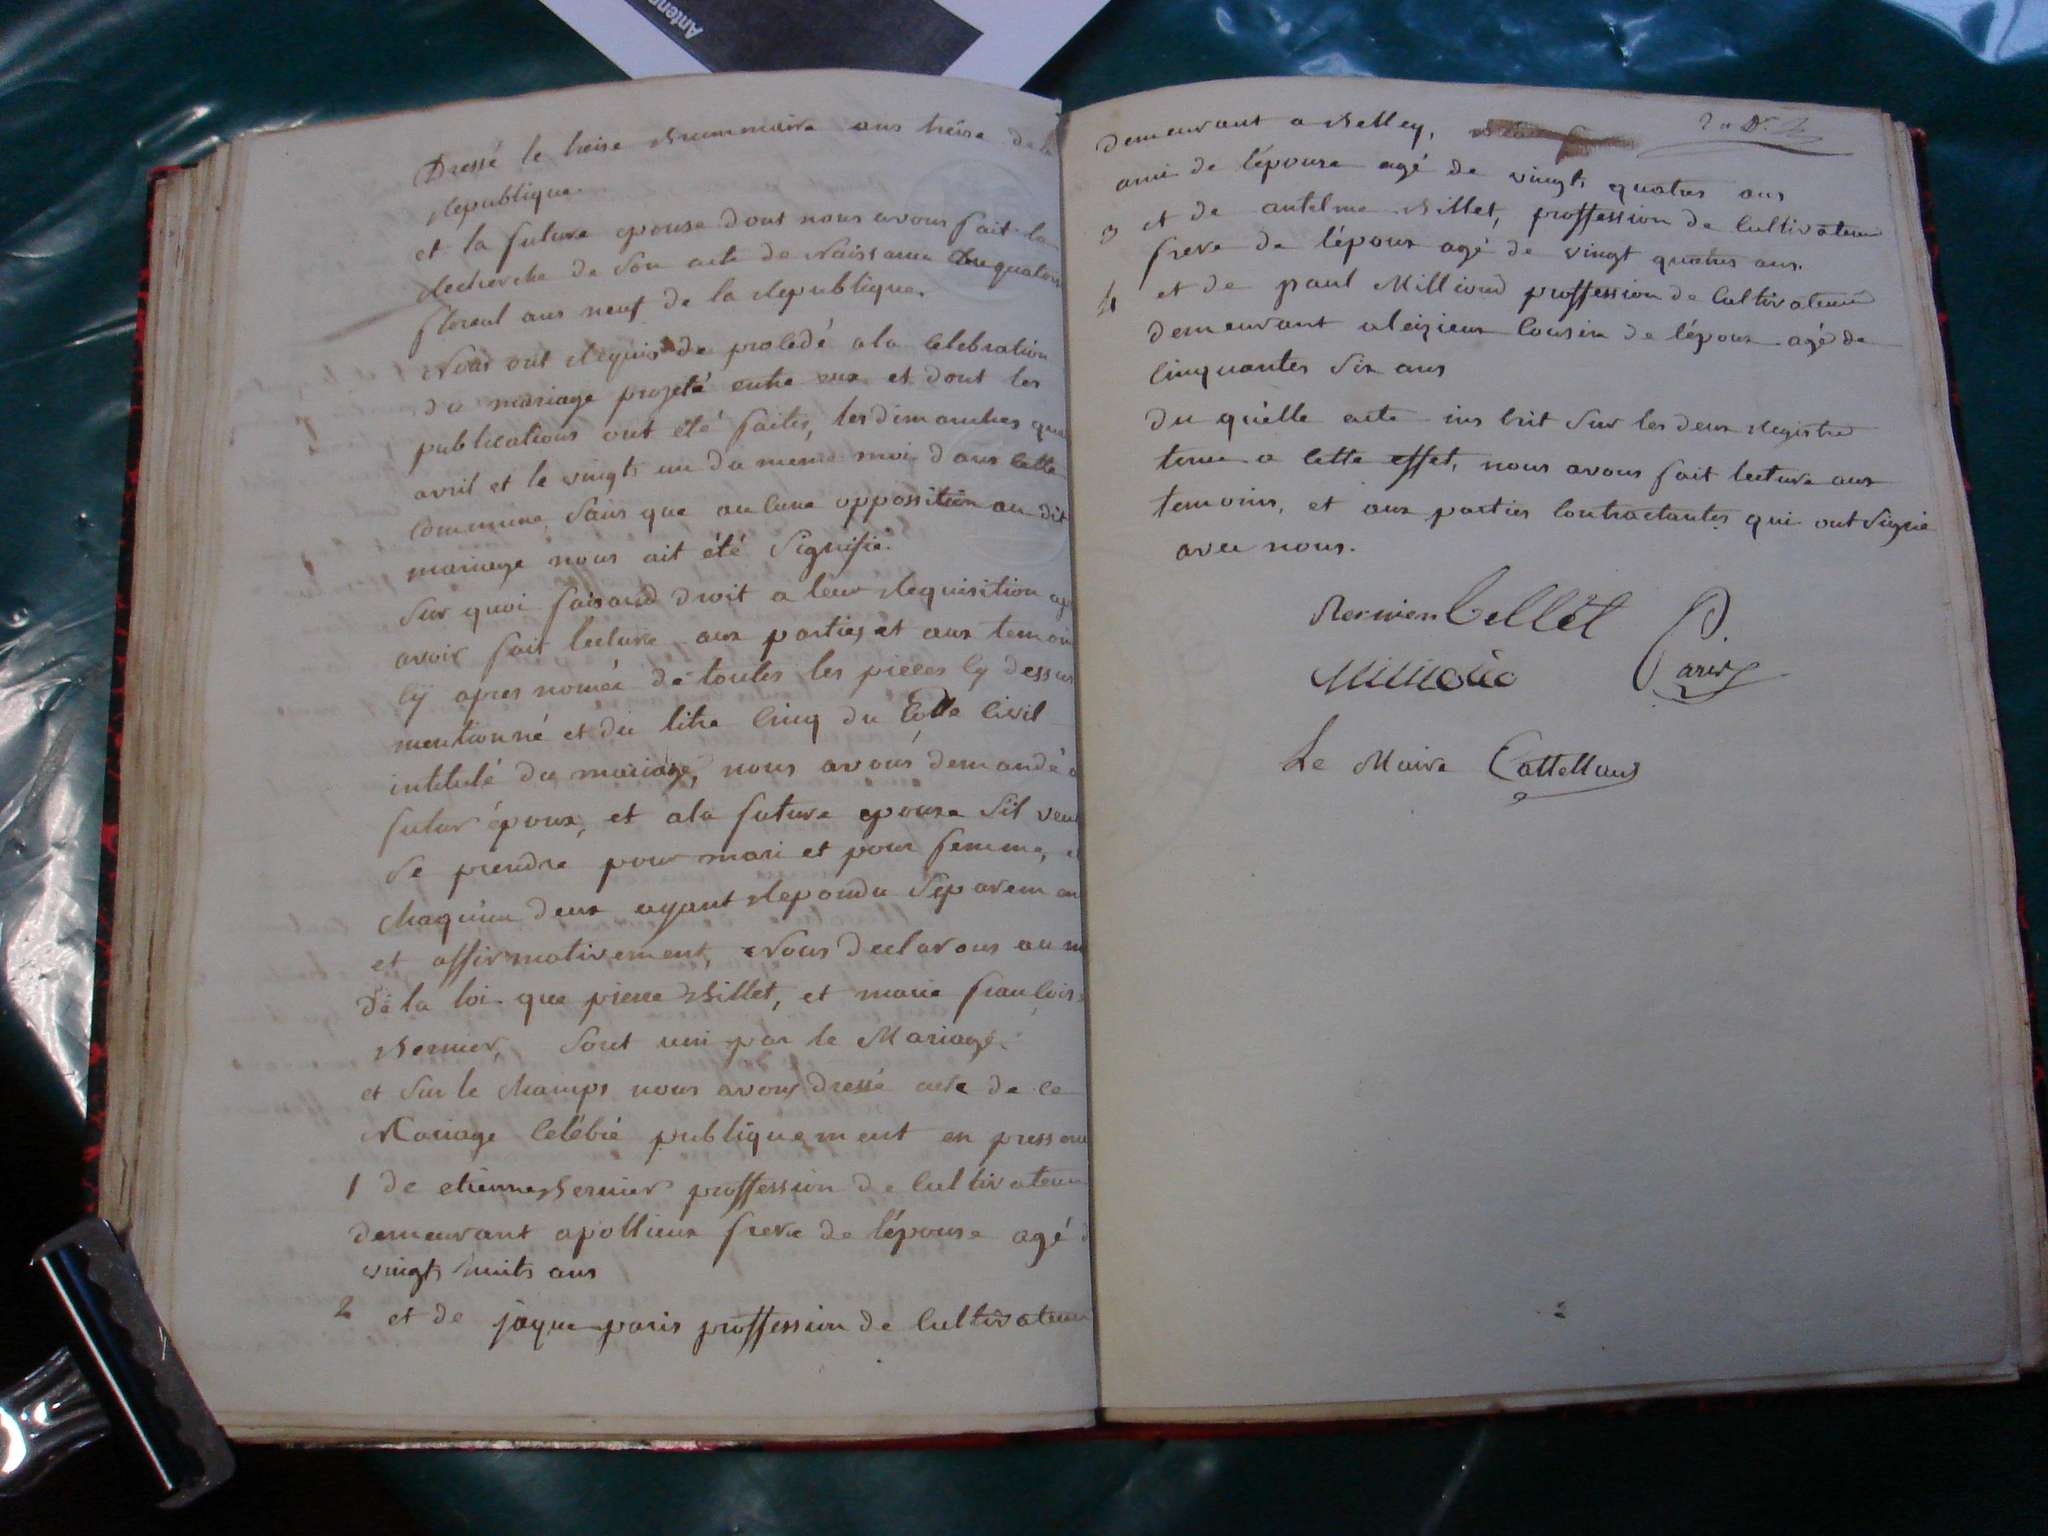 Antenn
Dressé le treise Brummaire ans treise de la
Republique.
et la future epouse dont nous avons fait la
Recherche de son acte de Naissance Du quatorze
floreal ans neuf de la Republique.
Nous ont Requis de procedé a la celebration
du mariage projeté entre eux et dont les
publications ont été faites, les dimanches qua
avril et le vingts un du meme moi dans cette
commune, sans que aucune oppossition au dit
mariage nous ait été signifié.
sur quoi faisand droit a leur Requisition ap
avoir fait lecture aux parties et aux temoin
cy apres nomée de toutes les pieces cy dessus
mentionné et du titre cinq du Code civil
intitulé du mariage, nous avons demandé a
futur époux, et a la future epouse s'il veul
se prendre pour mari et pour femme, e
chaqu'un deux ayant Repondu separemen
et affirmativement, Nous declarons au n
de la loi que pierre Billet, et marie françois
Bernier, sont uni par le Mariage.
et sur le champs nous avons dressé acte de ce
Mariage celébré publiquement en pressence
1 de etienne Bernier proffession de cultivateur
demeurant a pollieux frere de l'épouse agé d
vingts huits ans
2 et de jaque paris proffession de cultivateur
demeurant a Belley,
ami de l'épouse agé de vingts quatres ans
3 et de antelme Billet, proffession de cultivateur
frere de l'époux agé de vingt quatres ans.
4 et de paul Milliond proffession de cultivateur
demeurant a leizieux cousin de l'époux agé de
cinquantes six ans
du quélle acte inscrit sur les deux Registre
tenue a cette effet, nous avons fait lecture aux
temoins, et aux parties contractantes qui ont signé
avec nous.
Bernier billet P.
Paris
Le Maire Cattelland